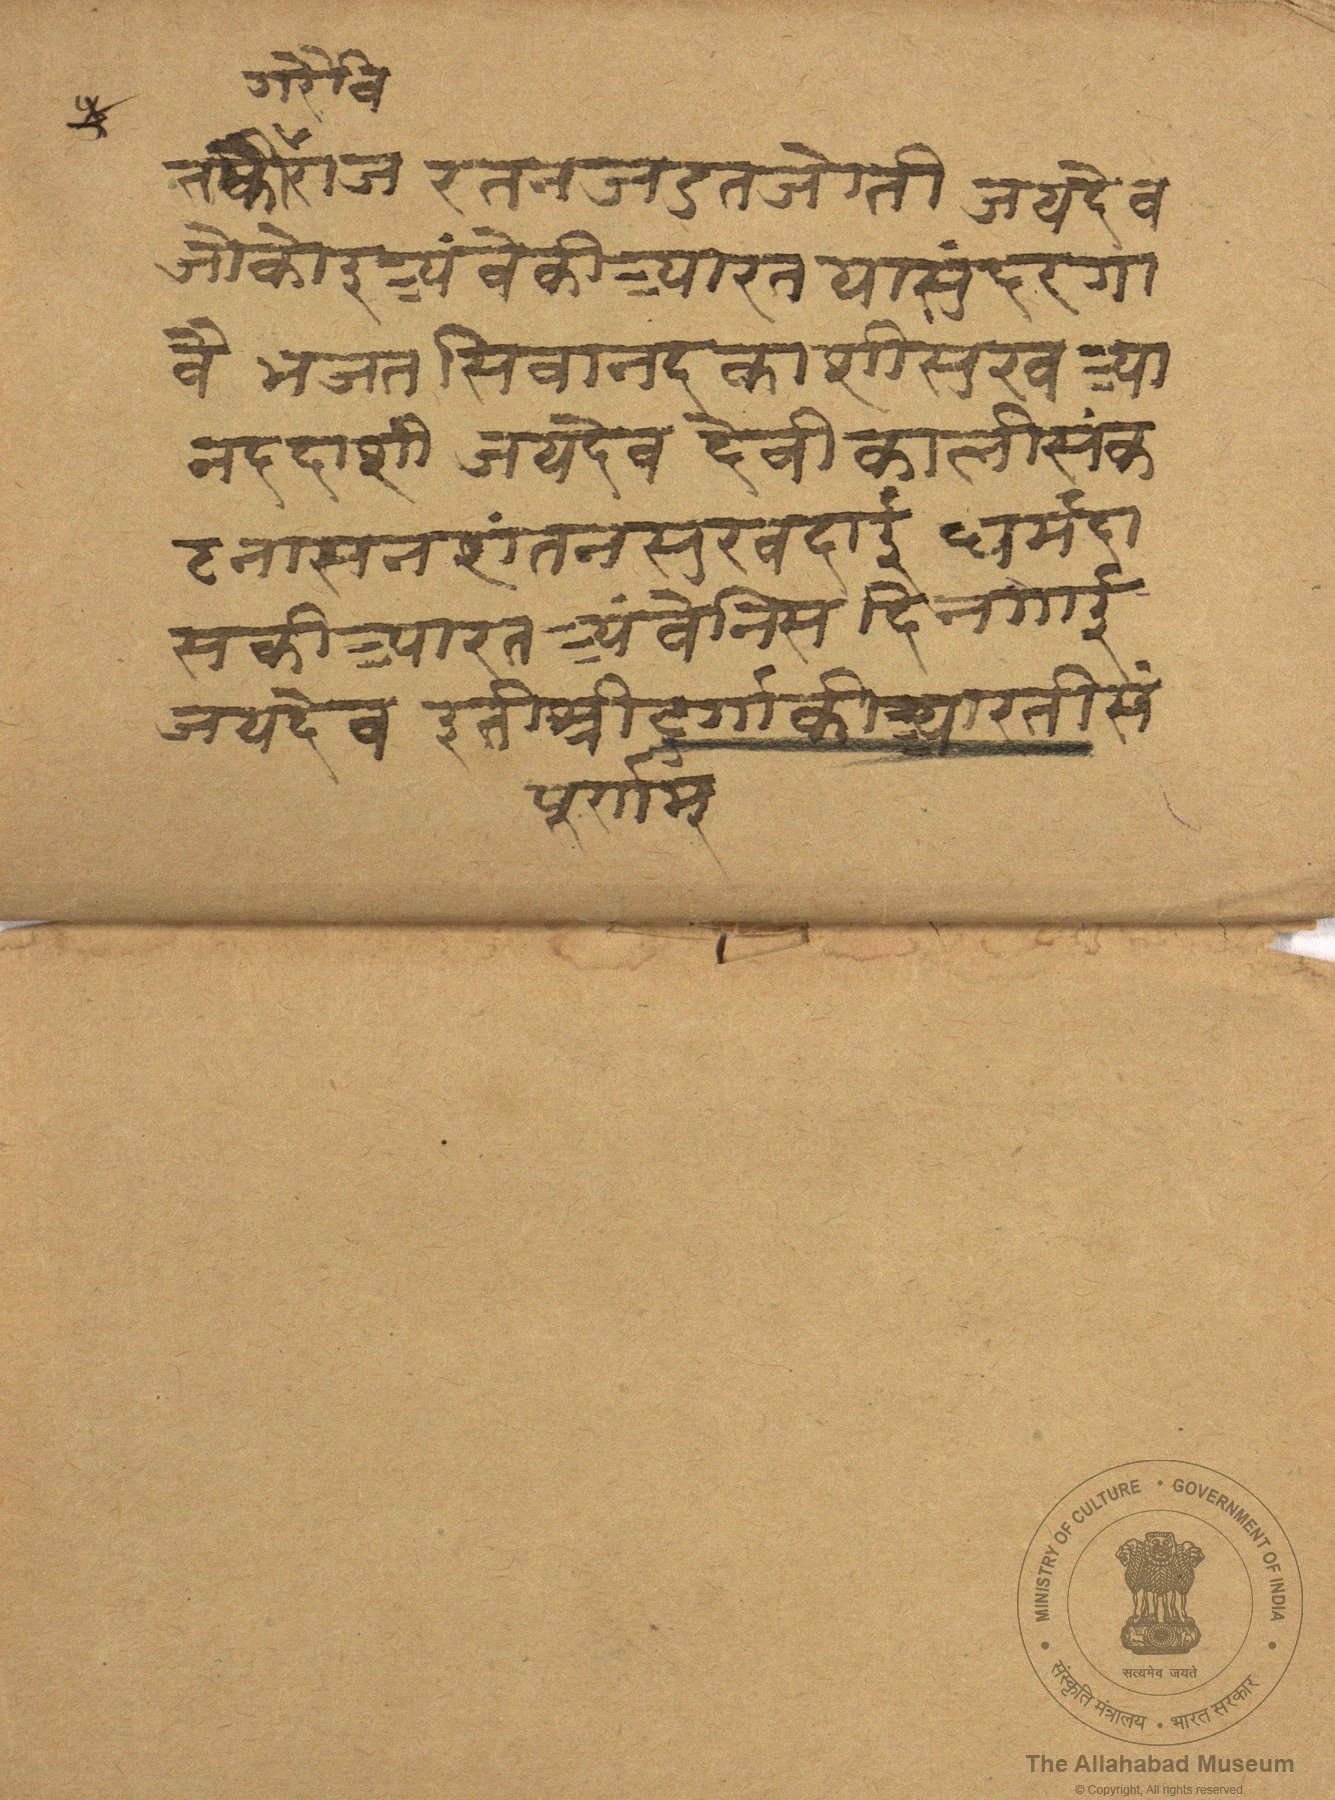 गरैवि
राज रतनजडतजोती जयदेव
जोकोइ न्यंवेकी न्यारत यासुंदरगा
वै भजत सिवानद काशीसुखन्या
नददाशी जयदेव देवी कालीसंक
टनासन शंतनसुखदाई धर्मदा
सकी न्यारत न्यंवेनिस दिनगाई
जयदेव इतीश्री दुर्गाकी न्यारतीसं
पूर्णाम्
MINISTRY OF CULTURE • GOVERNMENT OF INDIA
सत्यमेव जयते
संस्कृति मंत्रालय • भारत सरकार
The Allahabad Museum
© Copyright, All rights reserved.